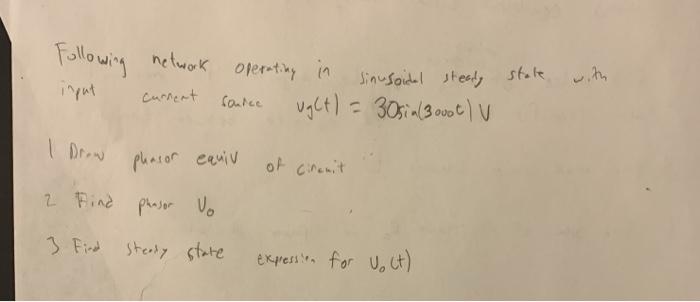 Following network operating in sinusoidal steady state with
input current source vg(t) = 30sin(3000t) V
1 Draw phasor equiv of circuit
2 Find phasor Vo
3 Find steady state expression for Vo(t)